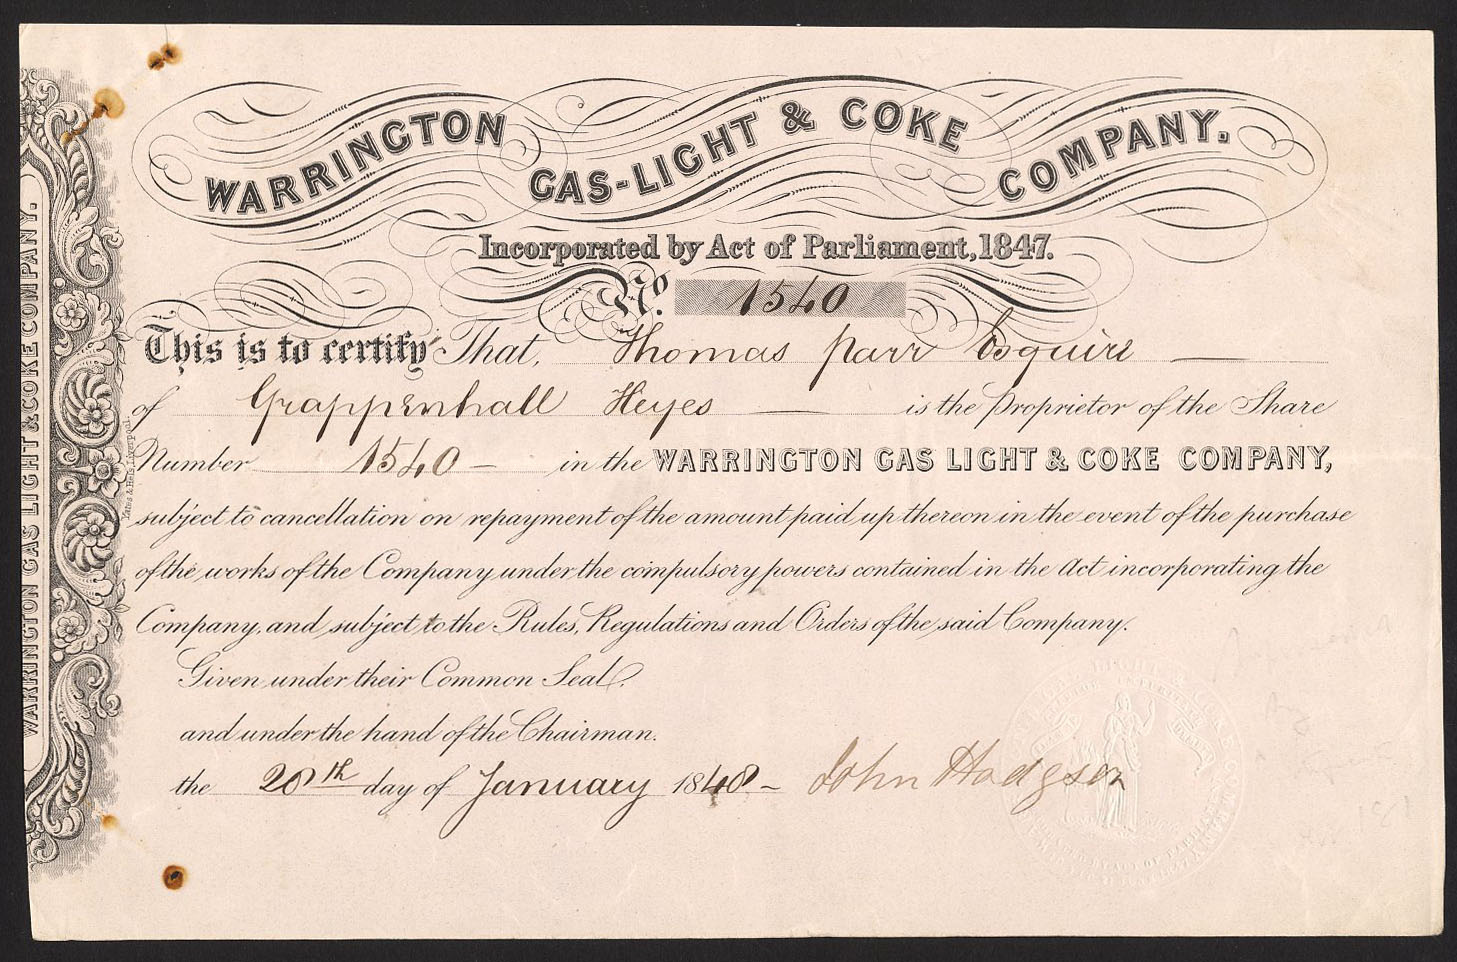 WARRINGTON GAS-LIGHT & COKE COMPANY.
Incorporated by Act of Parliament, 1847.
No. 1540
This is to certify That, Thomas Parr Esquire
of Grappenhall Heyes is the Proprietor of the Share
Number 1540 in the WARRINGTON GAS LIGHT & COKE COMPANY,
subject to cancellation on repayment of the amount paid up thereon in the event of the purchase
of the works of the Company under the compulsory powers contained in the Act incorporating the
Company, and subject to the Rules, Regulations and Orders of the said Company.
Given under their Common Seal.
and under the hand of the Chairman.
the 20th day of January 1848 John Hodgson
WARRINGTON GAS LIGHT & COKE COMPANY.
Liverpool